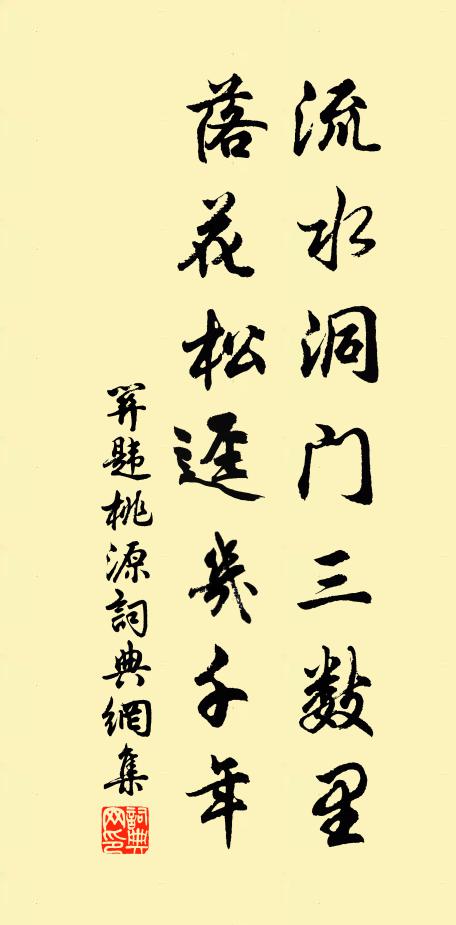 流水洞门三数里
落花松逕幾千年
題桃源詞典網集
詞典网印